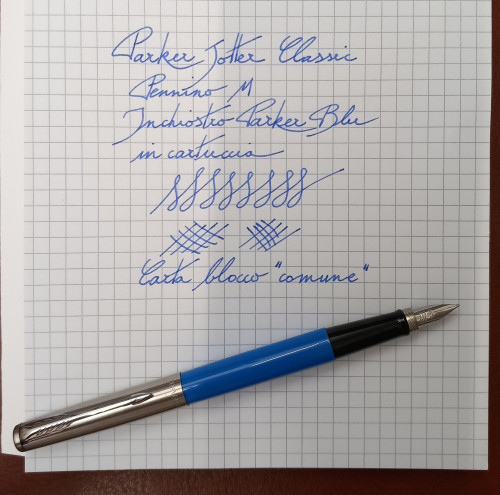 Parker Jotter Classic
Pennino M
Inchiostro Parker Blu
in cartuccia
Carta blocco "comune"